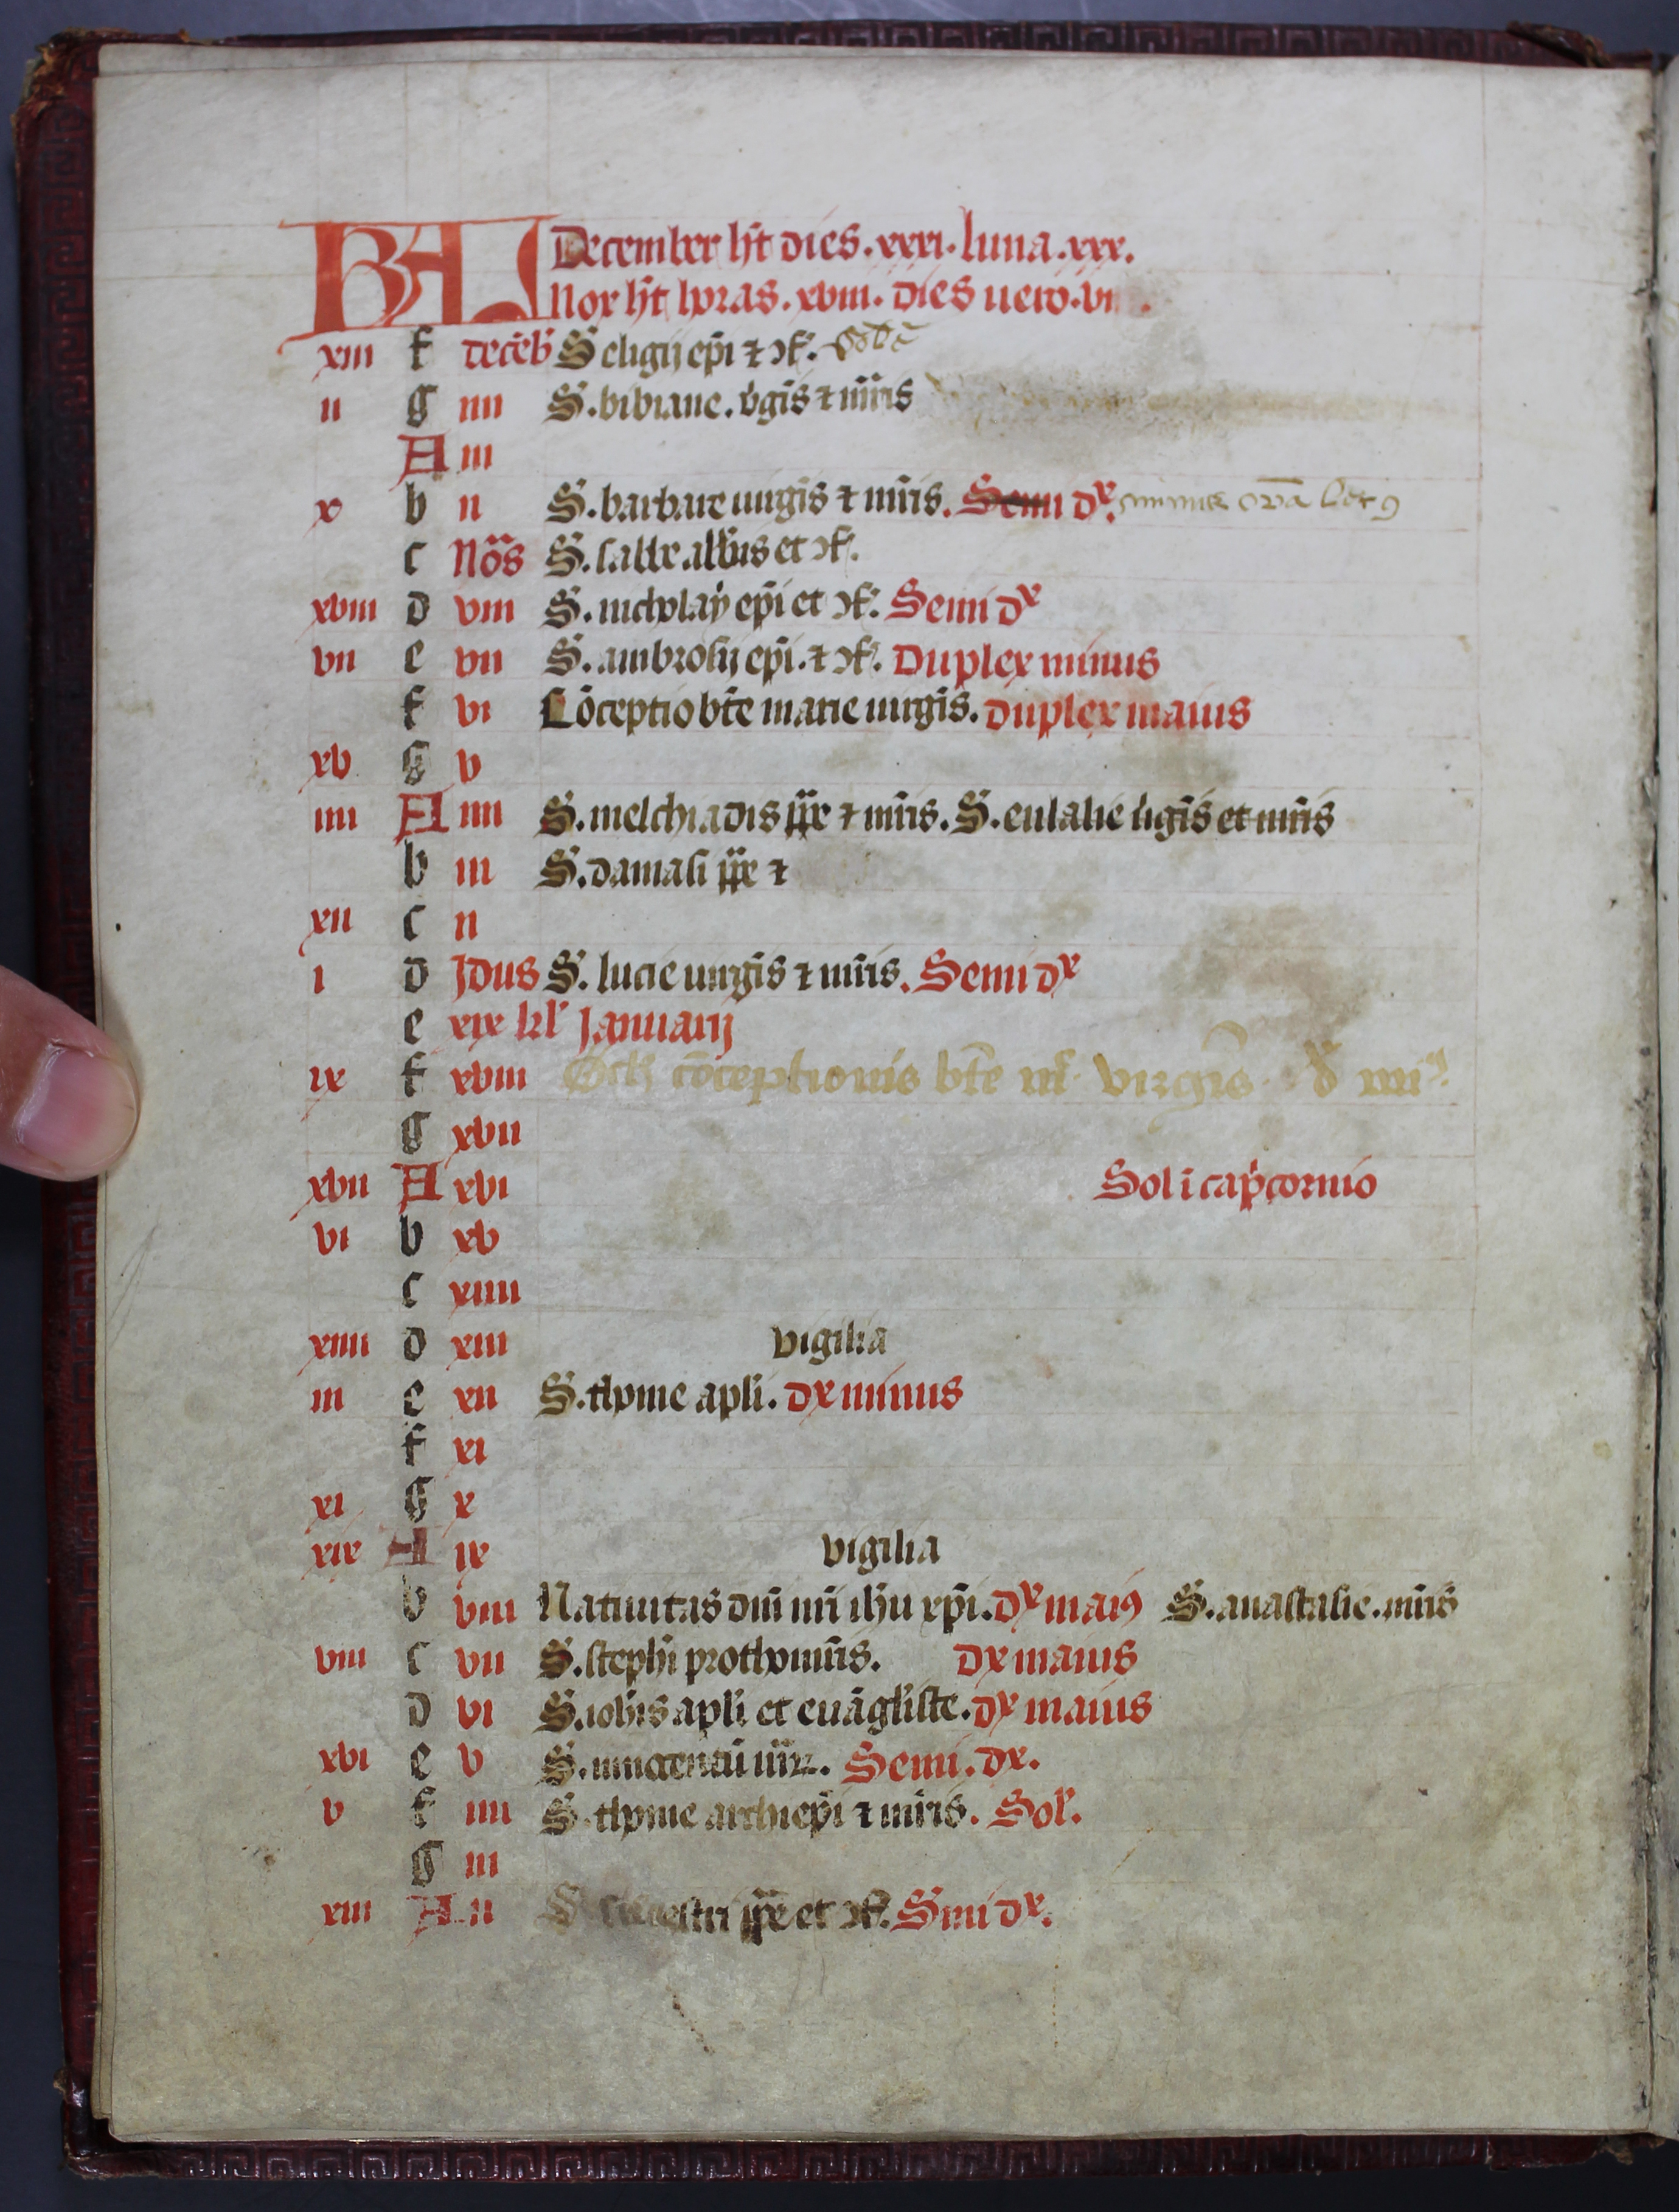 KAL December h̄t dies . xxxi . luna . xxx .
Nox h̄t horas . xviii . dies uero . vi .
xiii f decēb S eligij ep̄i ⁊ ɔf .
ii g iiii S . bibiane . v̄gīs ⁊ m̄ris
A iii
x b ii S . barbare uirgīs ⁊ m̄ris . Semi dx .
c Nōs S . sabbe abb̄is et ɔf .
xviii d viii S . nicholaÿ ep̄i et ɔf . Semi dx
vii e vii S . ambrosij ep̄i . ⁊ ɔf . Duplex minus
f vi Cōceptio bt̄e marie uirgīs . duplex maius
xv g v
iiii A iiii S . melchiadis p̄p̄e ⁊ m̄ris . S . eulalie ūgīs et m̄ris
b iii S . damasi p̄p̄e ⁊
xii c ii
i d Idus S . lucie uirgīs ⁊ m̄ris . Semi dx
e xix kl Januarij
ix f xviii Oct cōceptionis bt̄e m̄ . virgīs . d iiii
g xvii
xvii A xvi Sol ī cap̄cornio
vi b xv
c xiiii
xiiii d xiii vigilia
iii e xii S . thome ap̄li . dx minus
f xi
xi g x
xix A ix vigilia
b viii Natiuitas dn̄i nr̄i ih̄u xp̄i . dx maiꝯ S . anastasie . m̄ris
viii c vii S . steph̄i prothom̄ris . dx maius
d vi S . ioh̄is ap̄li et euāgl̄iste . dx maius
xvi e v S . innocentū m̄rꝝ . Semi . dx .
v f iiii S . thome archiep̄i ⁊ m̄ris . Sol' .
g iii
xiii A ii S siluestri p̄p̄e et ɔf . Smi dx .